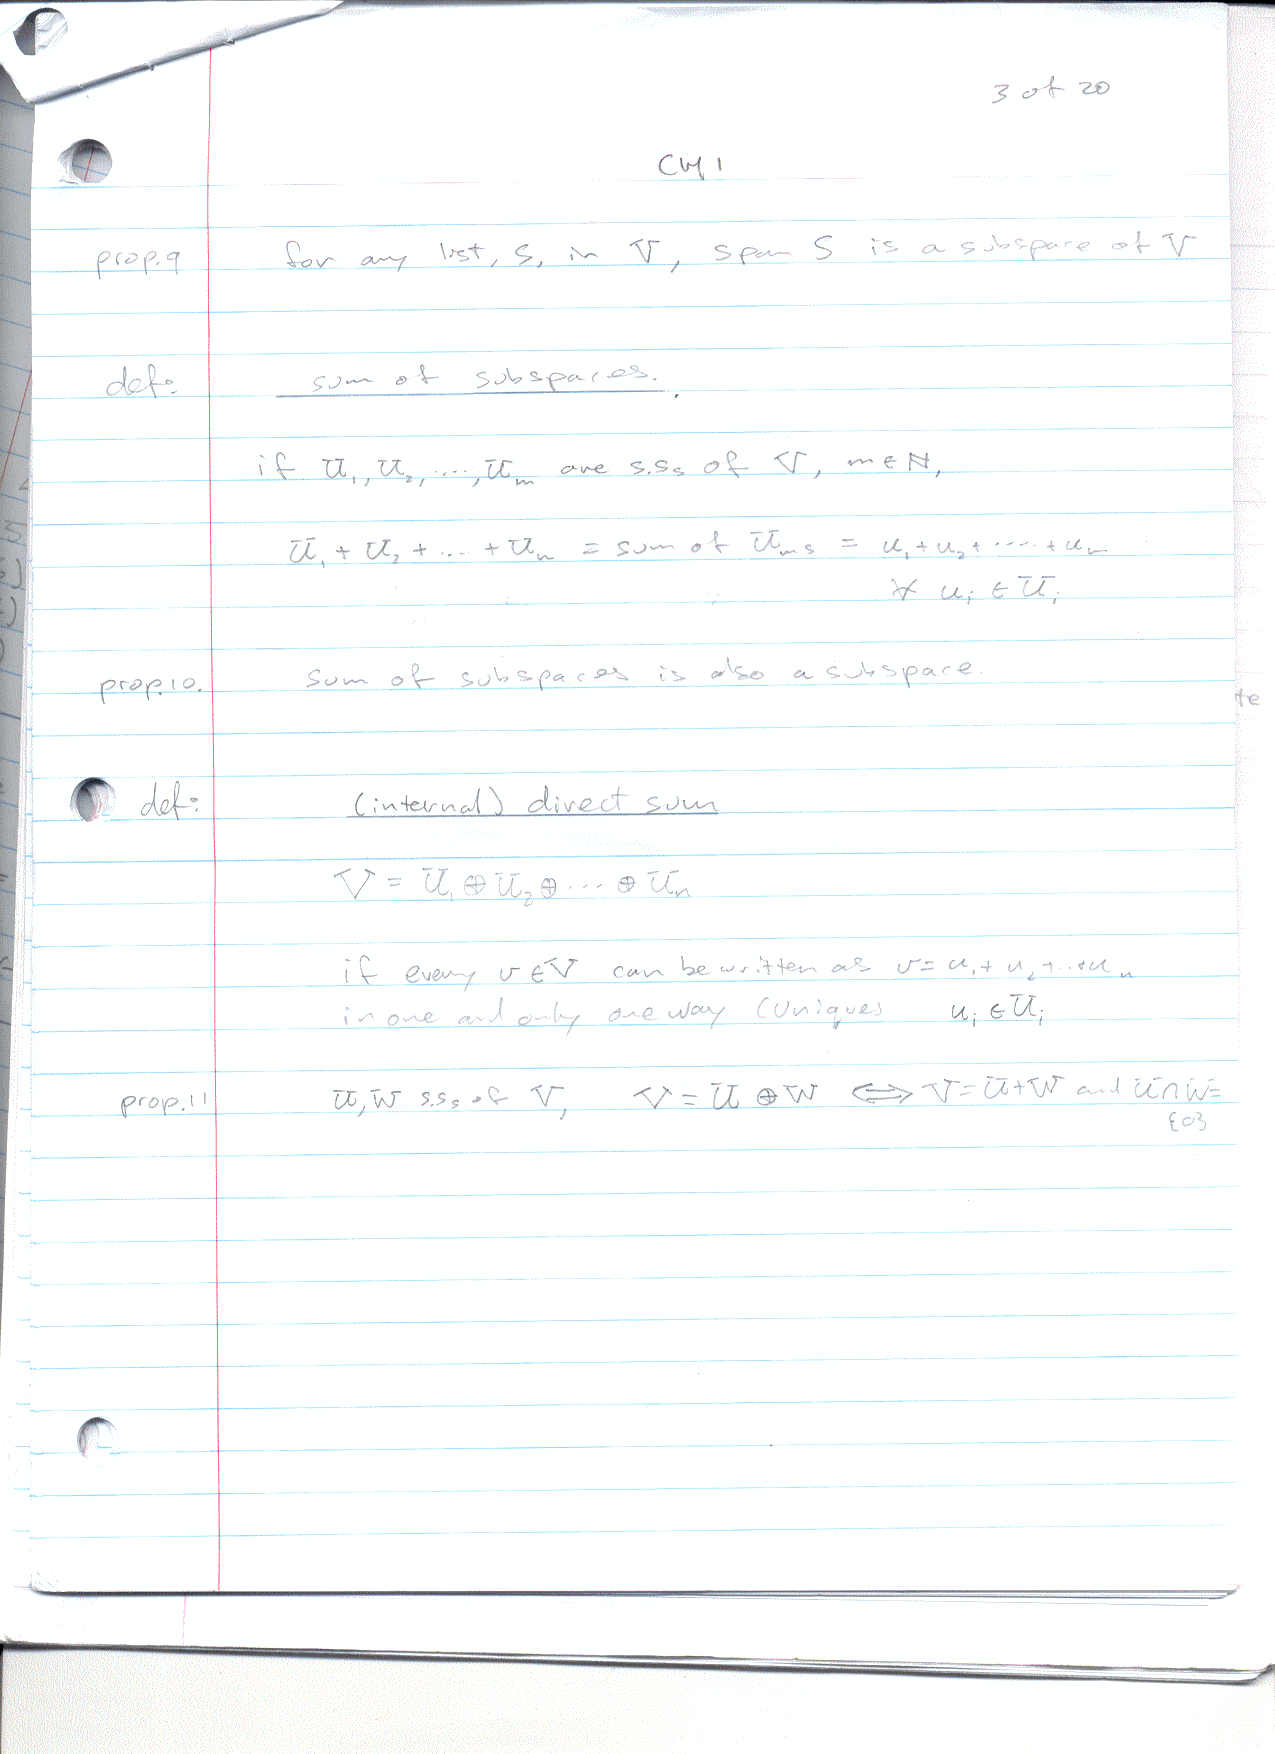 3 of 20
CH 1
prop.9 for any list, S, in V, span S is a subspace of V
def: sum of subspaces.
if U₁, U₂, ...., Uₘ are s.s₅ of V, m ∈ N,
U₁ + U₂ + ... + Uₘ = sum of Uₘs = u₁ + u₂ + ..... + uₘ
∀ uᵢ ∈ Uᵢ
prop.10. sum of subspaces is also a subspace.
def: (internal) direct sum
V = U₁ ⊕ U₂ ⊕ ... ⊕ Uₙ
if every v ∈ V can be written as v = u₁ + u₂ + ..+ uₙ
in one and only one way (unique) uᵢ ∈ Uᵢ
prop.11 U, W s.sₛ of V, V = U ⊕ W ⟺ V = U + W and U ∩ W =
{0}
te